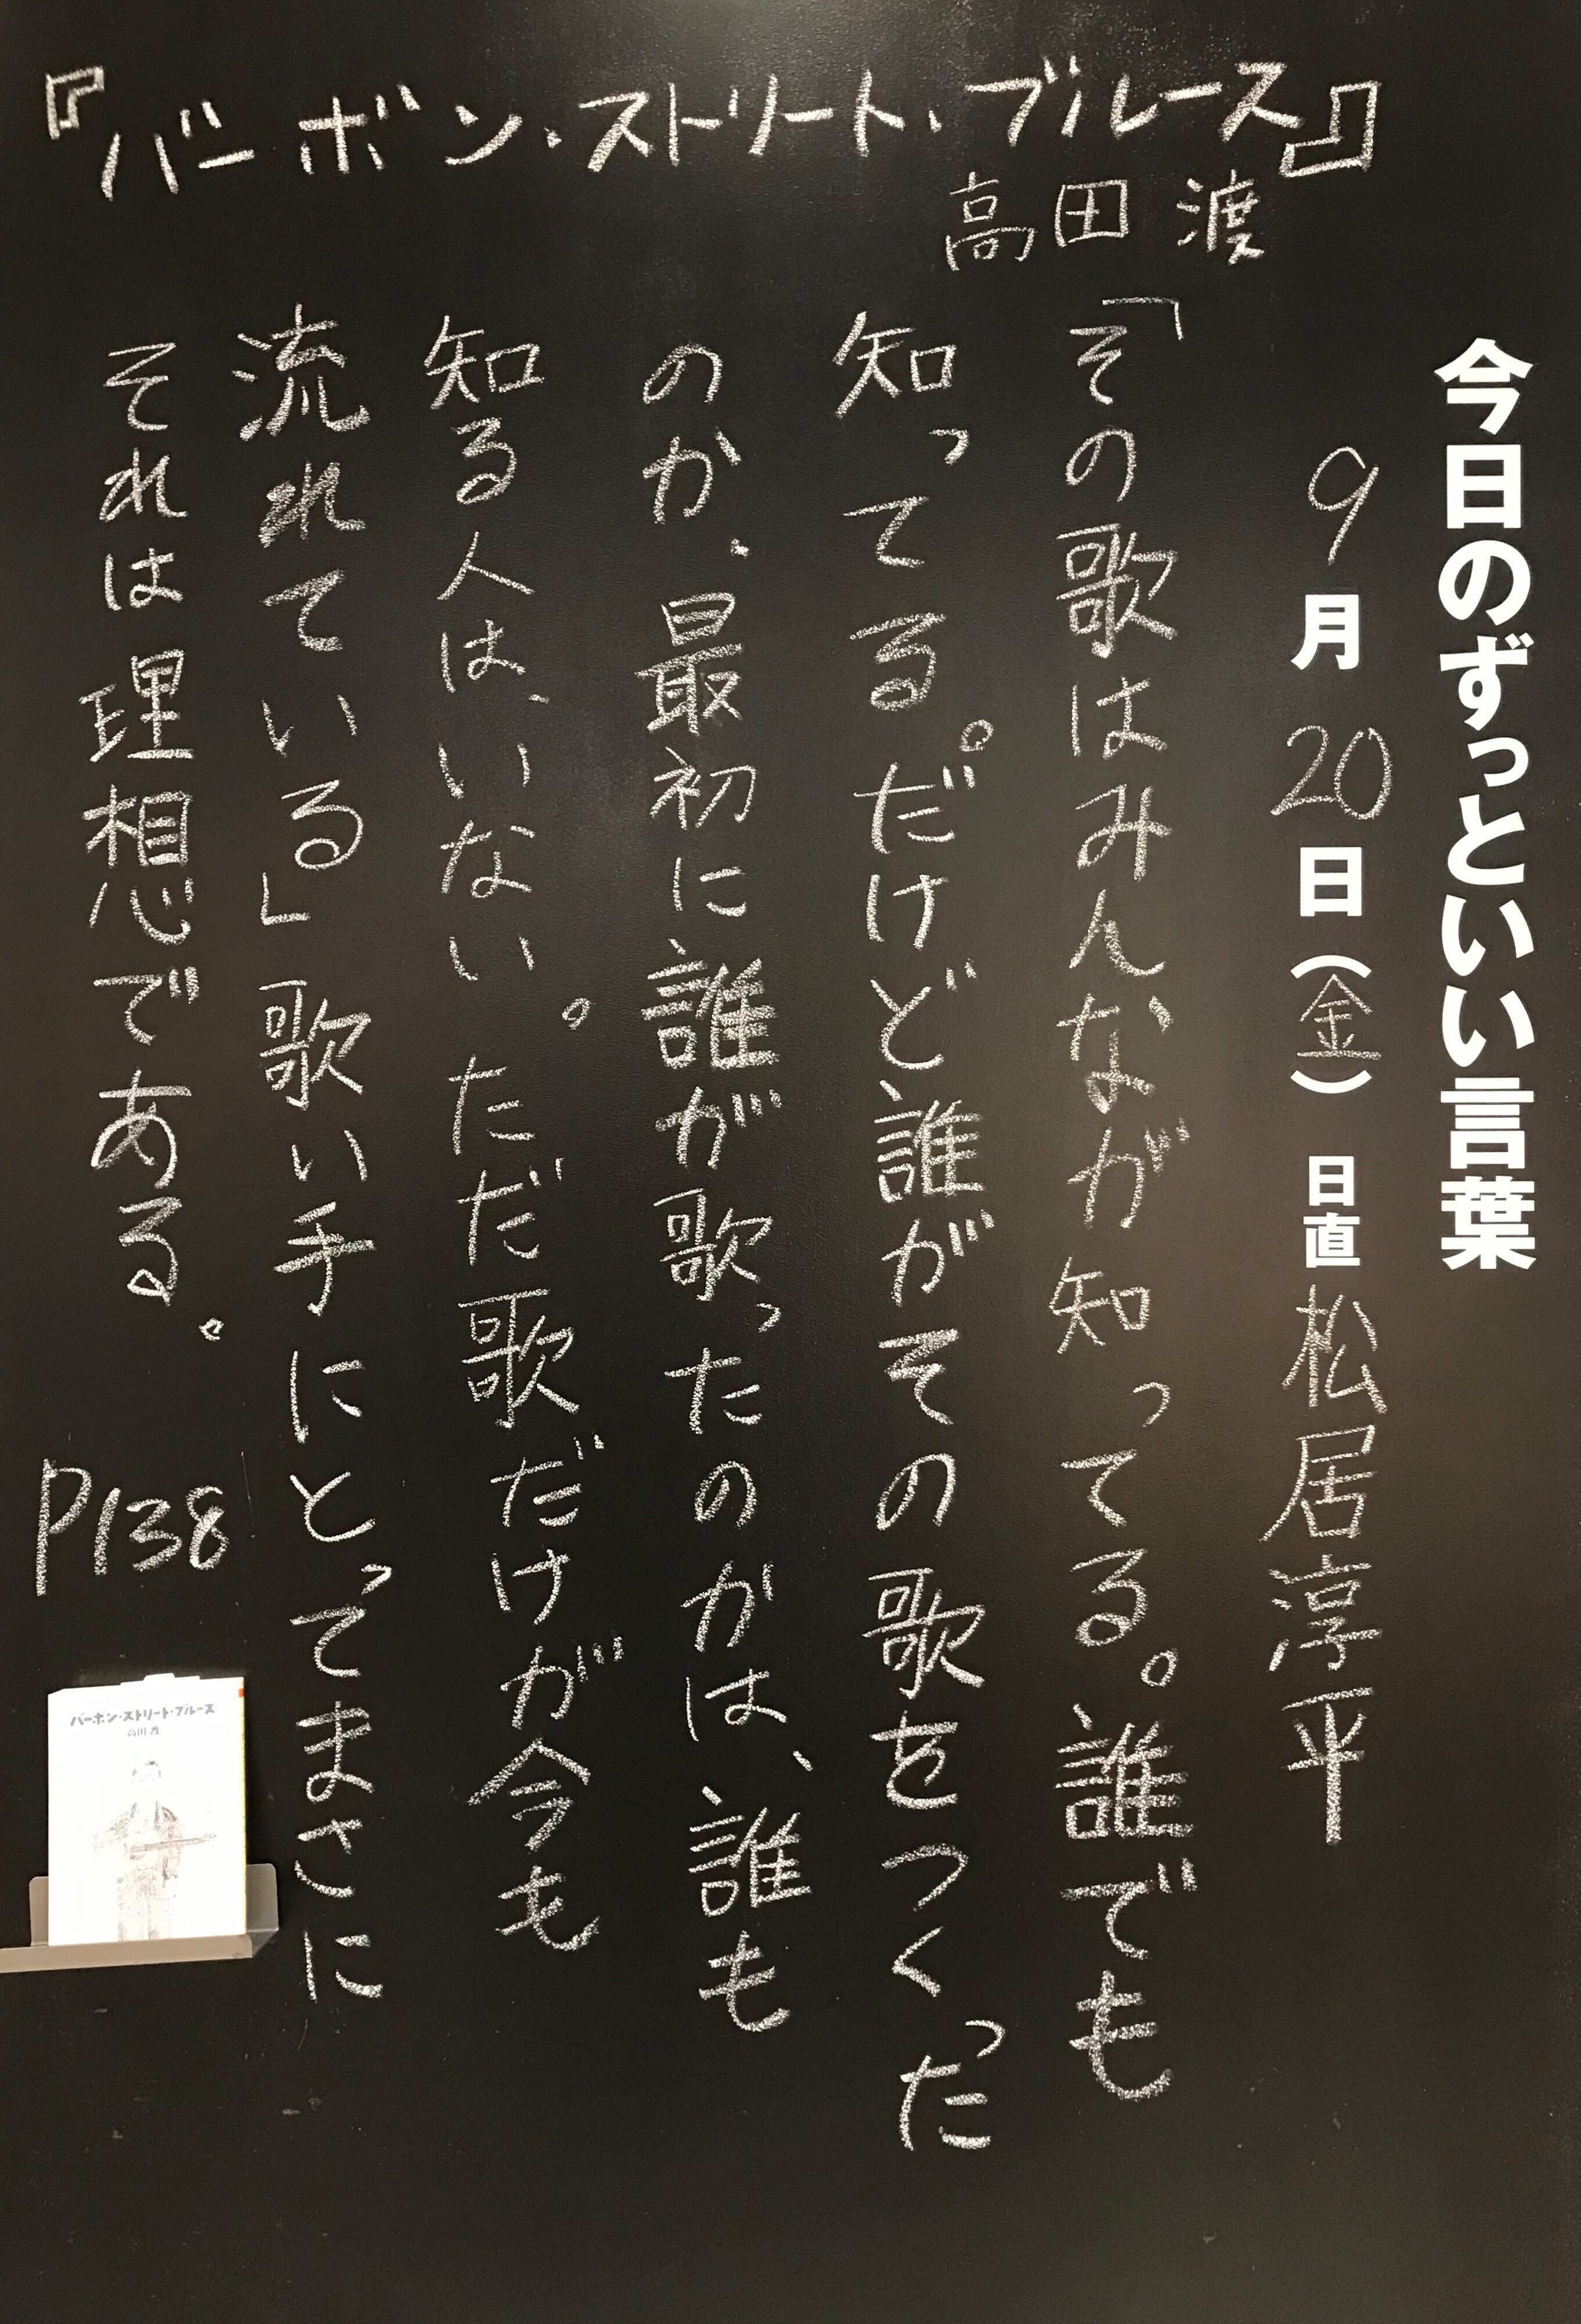 今日のずっといい言葉
9月20日(金) 日直 松居淳平
『バーボン・ストリート・ブルース』
高田 渡
「その歌はみんなが知ってる。誰でも
知ってる。だけど誰がその歌をつくった
のか、最初に誰が歌ったのかは、誰も
知る人は、いない。ただ歌だけが今も
流れている」歌い手にとってまさに
それは理想である。
P138
バーボン・ストリート・ブルース
高田渡